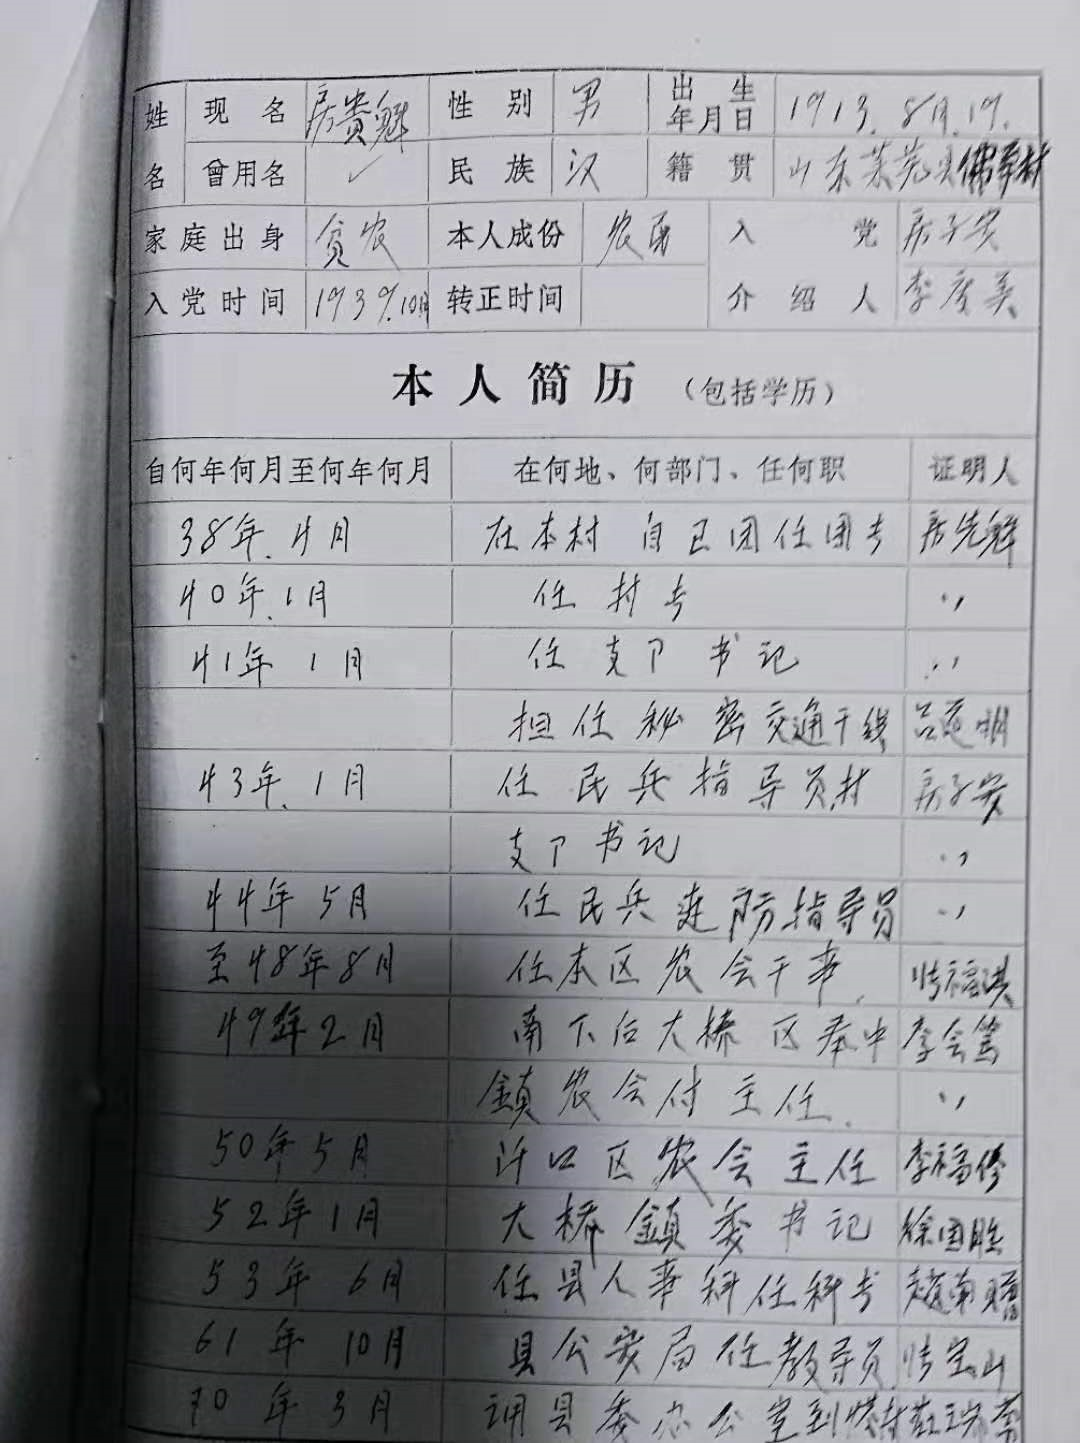 姓名 现名 房贵魁 性别 男 出生年月日 1913.8月.19.
曾用名 ✓ 民族 汉 籍贯 山东莱芜县
家庭出身 贫农 本人成份 农民 入党介绍人 房子安
入党时间 1939.10月 转正时间 李度美
本人简历（包括学历）
自何年何月至何年何月 在何地、何部门、任何职 证明人
38年.4月 在本村自卫团任团长 房先魁
40年.1月 任村长 〃
41年1月 任支卩书记 〃
担任秘密交通干线 吕莲明
43年.1月 任民兵指导员.村 房子安
支卩书记 〃
44年5月 任民兵连防指导员 〃
至48年8月 任本区农会干事. 张福洪
49年2月 南下后大桥区奉中 李会笃
鎮农会付主任. 〃
50年5月 许口区农会主任 李福修
52年1月 大桥鎮委书记 徐国胜
53年6月 任县人事科任科长 赵南
61年10月 县公安局任教导员 张宝山
70年3月 调县委办公室到